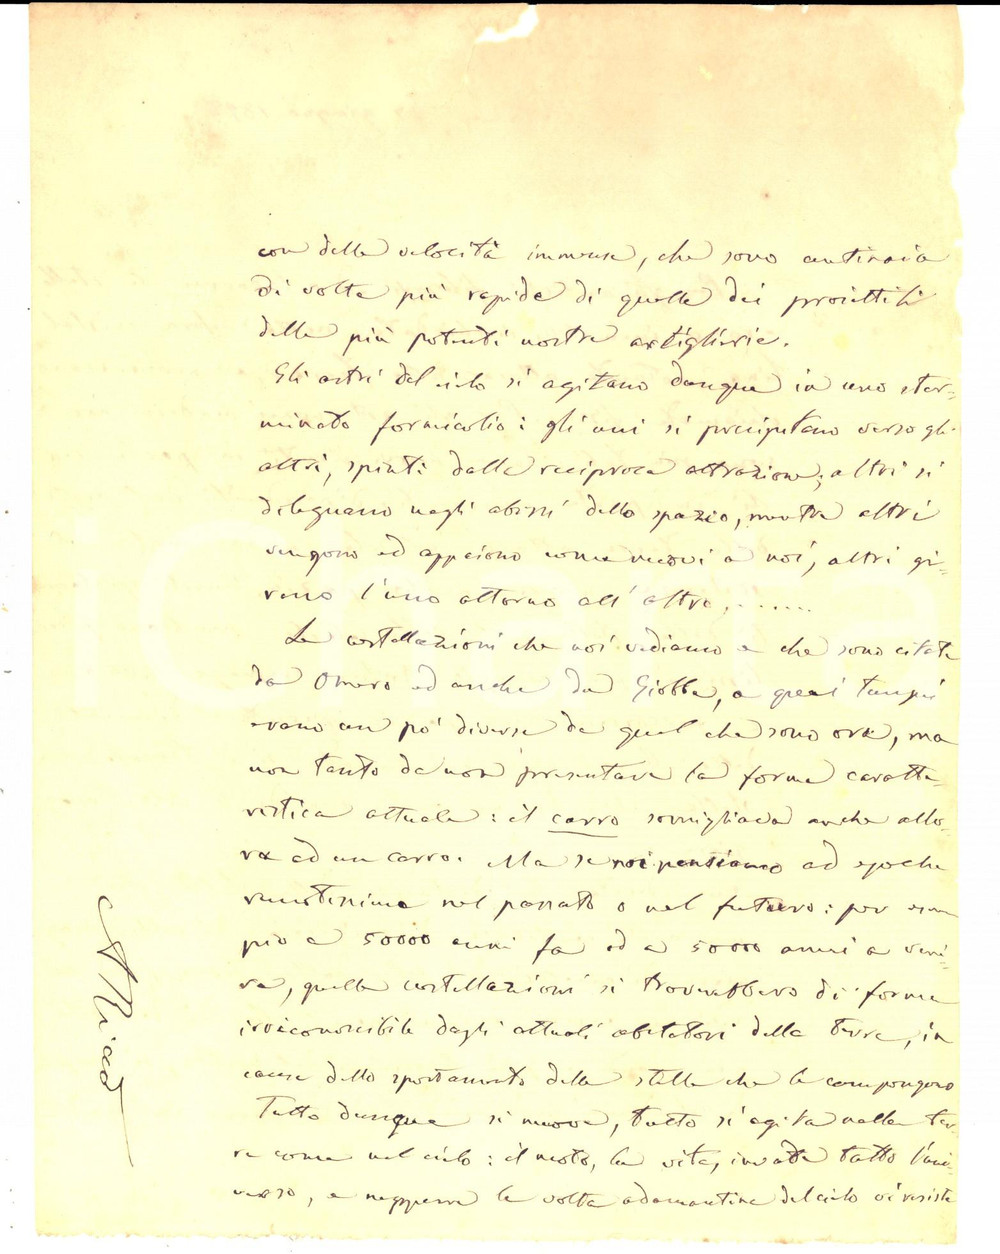 con delle velocità immense, che sono centinaia
di volte più rapide di quelle dei proiettili
delle più potenti nostre artiglierie.
Gli astri del cielo si agitano dunque in uno ster-
minato formicolio: gli uni si precipitano verso gli
altri, spinti dalla reciproca attrazione; altri si
dileguano negli abissi dello spazio, mentre altri
vengono ed appaiono come nuovi a noi, altri gi-
rano l'uno attorno all'altro, .......
Le costellazioni che noi vediamo e che sono citate
da Omero ed anche da Giobbe, a quei tempi
erano un po' diverse da quel che sono ora, ma
non tanto da non presentare la forma caratte-
ristica attuale: il carro somigliava anche allo-
ra ad un carro. Ma se noi pensiamo ad epoche
remotissime nel passato o nel futuro: per esem
pio a 50000 anni fa ed a 50000 anni a veni-
re, quelle costellazioni si troverebbero di forme
irriconoscibile dagli attuali abitatori della terra, in
causa dello spostamento delle stelle che le compongono
Tutto dunque si muove, tutto si agita nella ter-
ra come nel cielo: il moto, la vita, invade tutto l'uni-
verso, e neppure la volta adamantina del cielo vi resiste
A Riccò